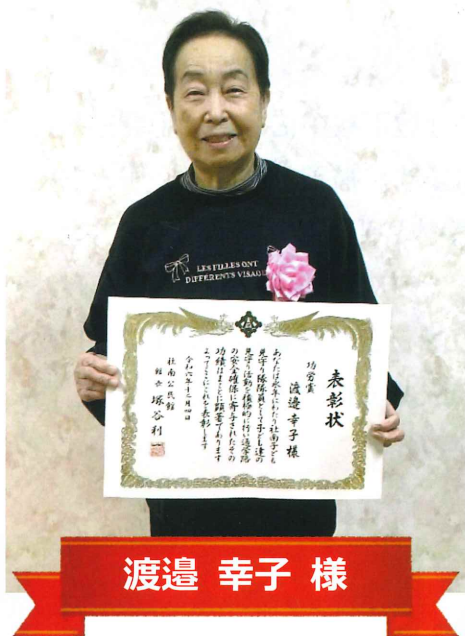 LES FILLES ONT
DIFFERENTS VISAGE
表彰状
功労賞
渡邉幸子様
あなたは永年にわたり社南子ども
見守り隊隊員として子ども達の
見守り活動を積極的に行い通学路
の安全確保に寄与されたその
功績はまことに顕著であります
よってここにこれを表彰します
令和六年十二月四日
社南公民館
館長 塚谷利一
渡邉 幸子 様